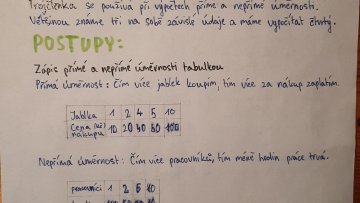 Trojčlenka se používá při výpočtech přímé a nepřímé úměrnosti.
Většinou známe tři na sobě závislé údaje a máme vypočítat čtvrtý.
POSTUPY:
Zápis přímé a nepřímé úměrnosti tabulkou
Přímá úměrnost: čím více jablek koupím, tím více za nákup zaplatím.
Jablka 1 2 4 5 10
Cena (Kč) nákupu 10 20 40 50 100
Nepřímá úměrnost: Čím více pracovníků, tím méně hodin práce trvá.
pracovníci 1 2 5 10